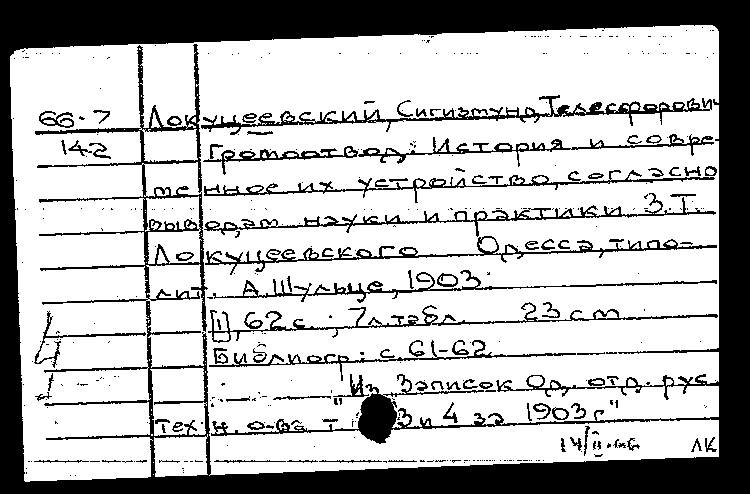 66-7 Локуцеевский, Сигизмунд Телесфорович
142 Громоотвод: История и совре-
менное их устройство, согласно
выводам науки и практики З.Т.
Локуцеевского Одесса, типо-
лит. А. Шульце, 1903.
[1], 62 с.; 7 л. табл. 23 cm
Библиогр: с. 61-62
"Из Записок Од. отд. рус.
техн. о-ва т 3 и 4 за 1903 г"
14/II-66 ЛК